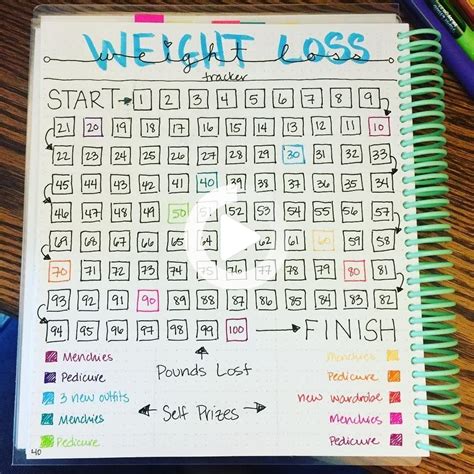 WEIGHT LOSS
weight loss
tracker
START 1 2 3 4 5 6 7 8 9
21 20 19 18 17 16 15 14 13 12 11 10
22 23 24 25 26 27 28 29 30 31 32 33
45 44 43 42 41 40 39 38 37 36 35 34
46 47 48 49 50 51 52 53 54 55 56 57
69 68 67 66 65 64 63 62 61 60 59 58
70 71 72 73 74 75 76 77 78 79 80 81
93 92 91 90 89 88 87 86 85 84 83 82
94 95 96 97 98 99 100 FINISH
Menchies
Pedicure
3 new outfits
Menchies
Pedicure
Pounds Lost
Self Prizes
Menchies
Pedicure
new wardrobe
Menchies
Pedicure
40